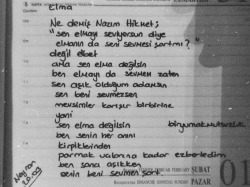 elma
Ne demiş Nazım Hikmet;
"sen elmayı seviyorsun diye
elmanın da seni sevmesi şart mı?"
değil elbet
ama sen elma değilsin
ben elmayı da sevmem zaten
sen aşık olduğum adamsın
sen beni sevmezsen
mevsimler karışır birbirine
yani
sen elma değilsin
ben senin her anını
kirpiklerinden
parmak
kadar ezberledim
ben sana aşıkken
senin beni sevmen şart.
ŞUBAT
PAZAR
01